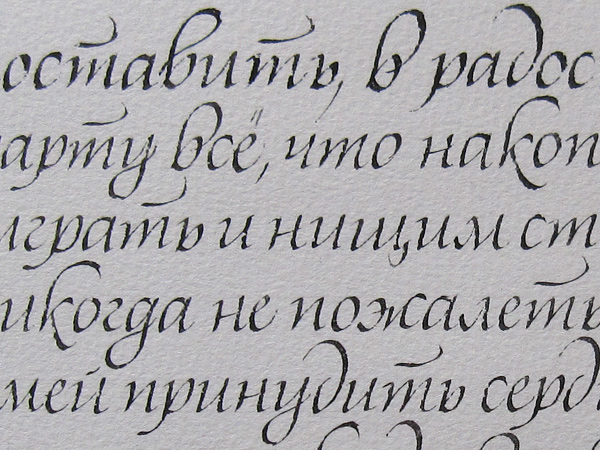 оставить, в радос
арту всё, что накоп
играть и нищим ст
икогда не пожалеть
мей принудить серд